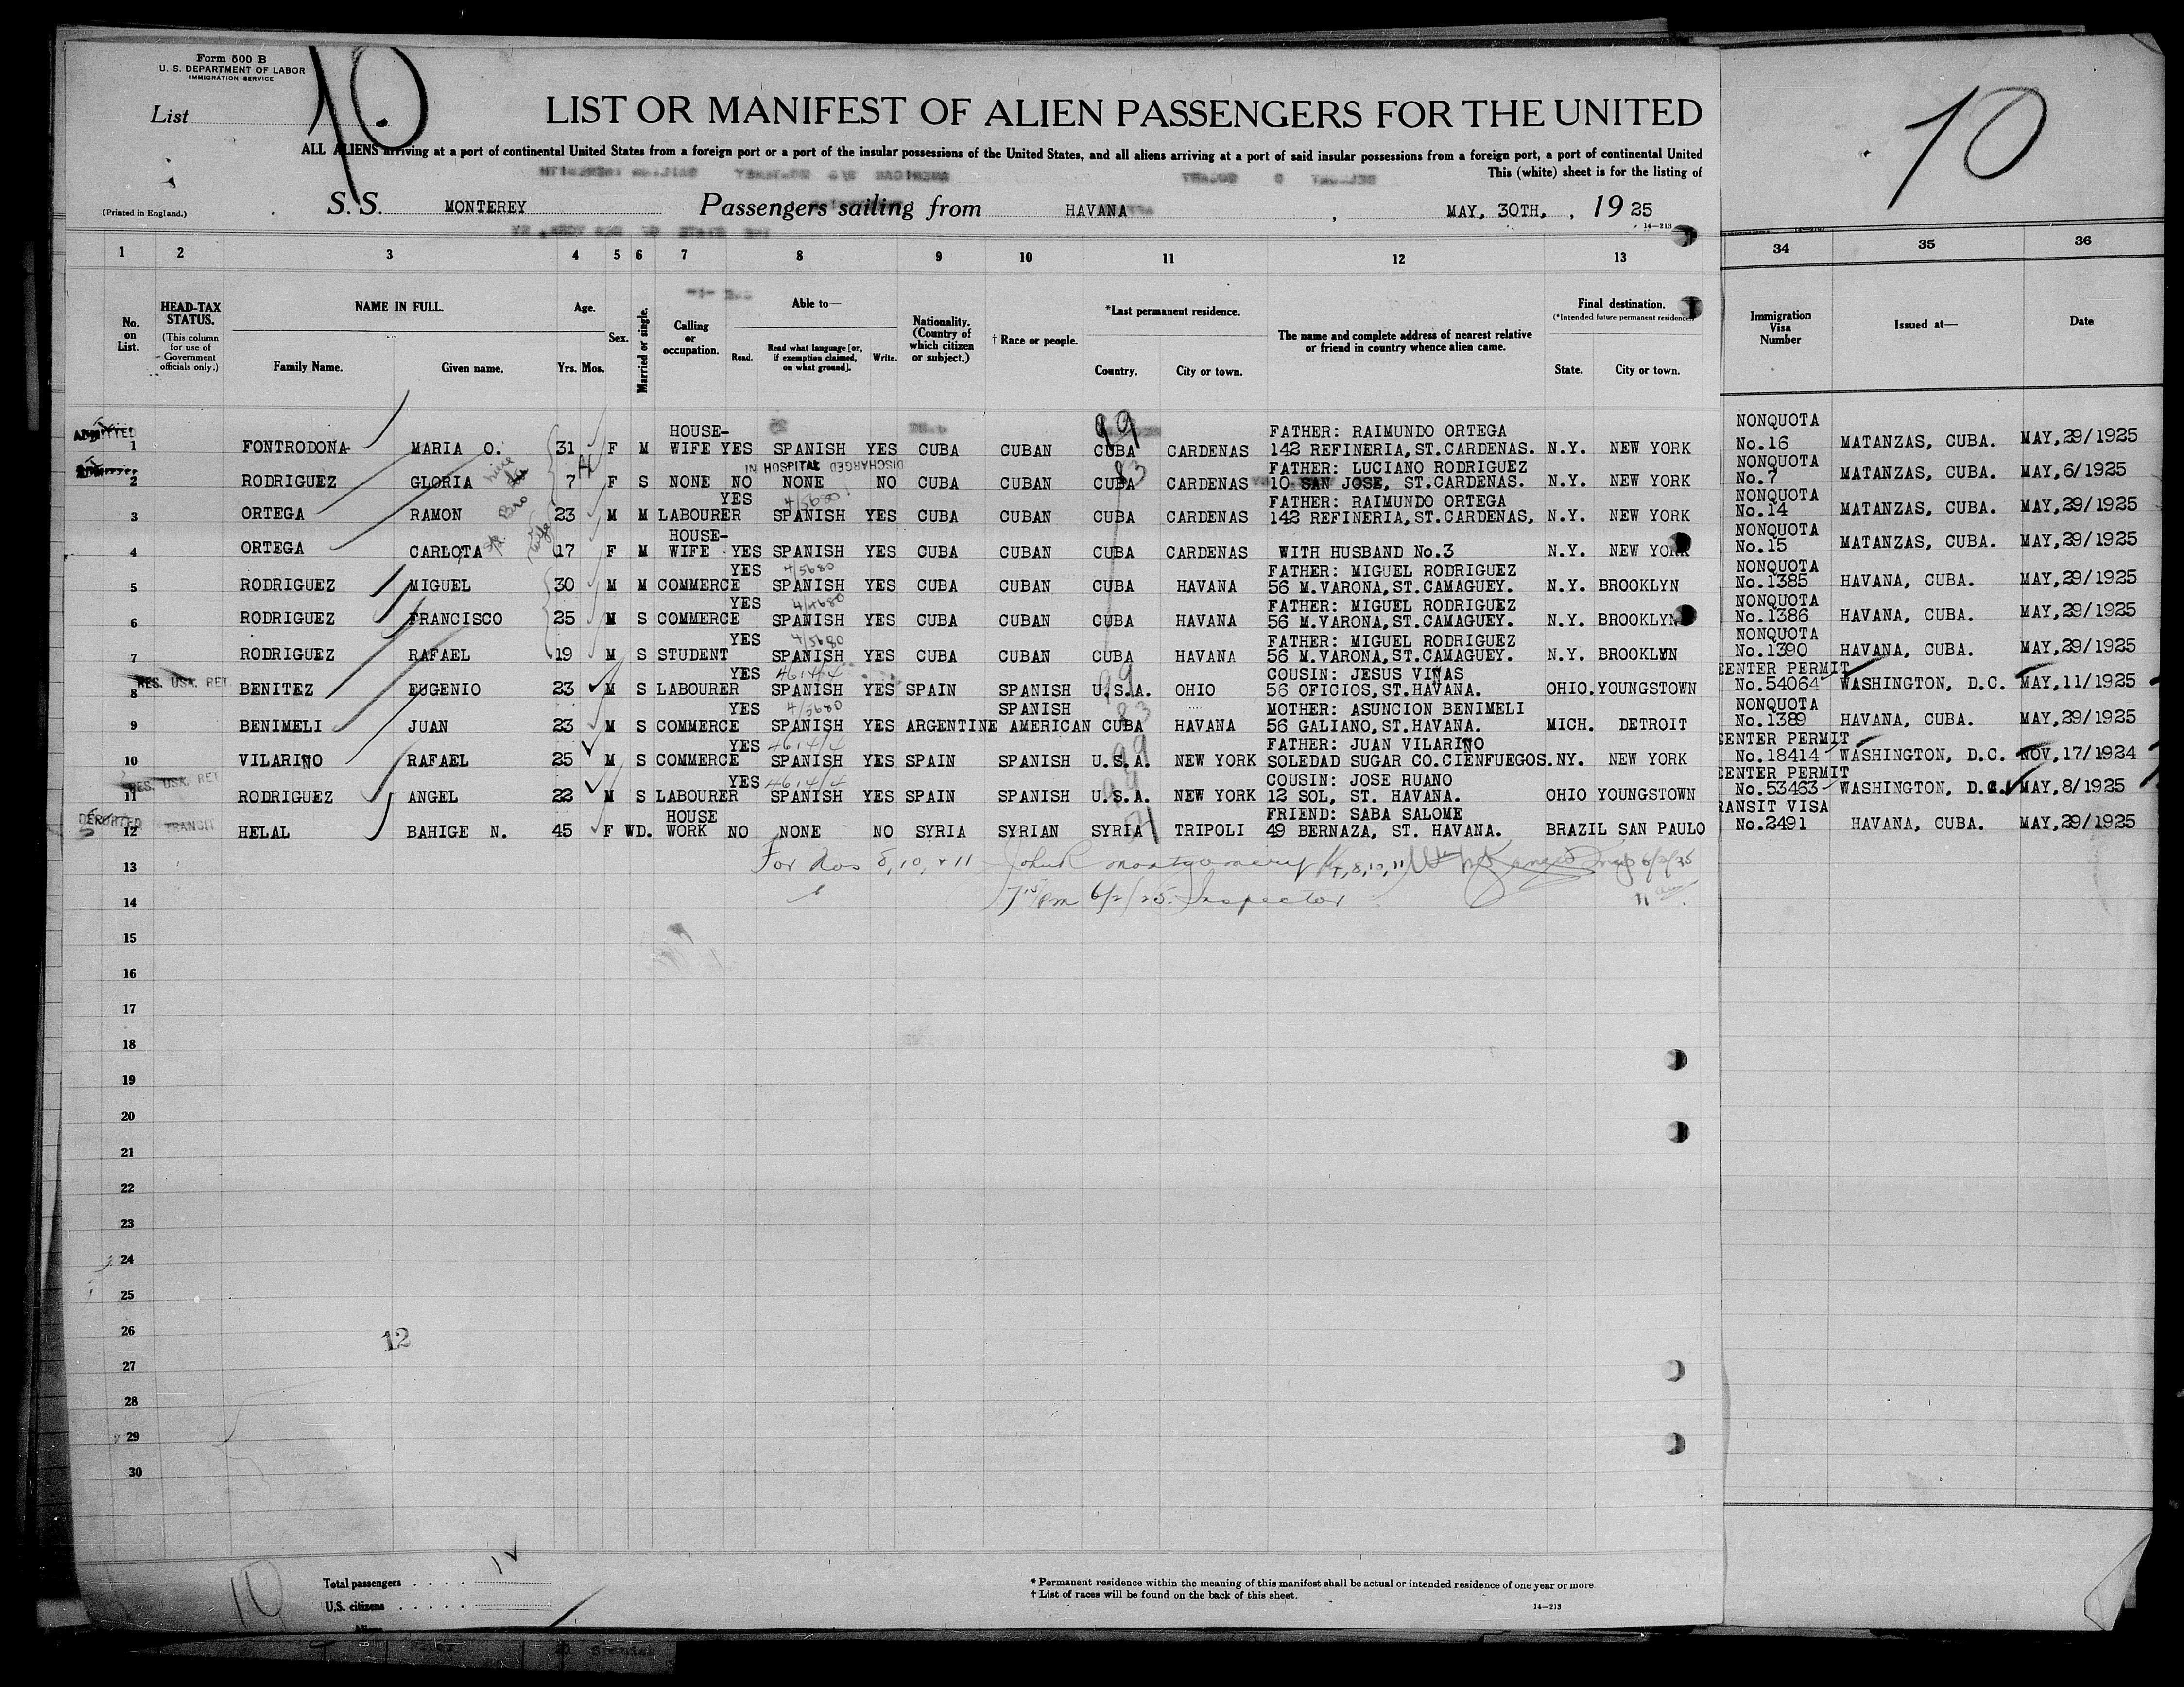 Form 500 B
U. S. DEPARTMENT OF LABOR
IMMIGRATION SERVICE
List
10
LIST OR MANIFEST OF ALIEN PASSENGERS FOR THE UNITED
ALL ALIENS arriving at a port of continental United States from a foreign port or a port of the insular possessions of the United States, and all aliens arriving at a port of said insular possessions from a foreign port, a port of continental United
This (white) sheet is for the listing of
(Printed in England.)
S. S. MONTEREY Passengers sailing from HAVANA , MAY, 30TH, , 19 25
14-213
10
1 2 3 4 5 6 7 8 9 10 11 12 13 34 35 36
No. on List.
HEAD-TAX STATUS.
(This column for use of Government officials only.)
NAME IN FULL.
Family Name. Given name.
Age.
Yrs. Mos.
Sex.
Married or single.
Calling or occupation.
Able to—
Read. Read what language [or, if exemption claimed, on what ground]. Write.
Nationality. (Country of which citizen or subject.)
† Race or people.
*Last permanent residence.
Country. City or town.
The name and complete address of nearest relative or friend in country whence alien came.
Final destination.
(*Intended future permanent residence)
State. City or town.
Immigration Visa Number
Issued at—
Date
ADMITTED HOUSE- 99 FATHER: RAIMUNDO ORTEGA NONQUOTA
1 FONTRODONA MARIA O. 31 F M WIFE YES SPANISH YES CUBA CUBAN CUBA CARDENAS 142 REFINERIA,ST.CARDENAS. N.Y. NEW YORK No.16 MATANZAS, CUBA. MAY,29/1925
IN HOSPITAL DISCHARGED 83 FATHER: LUCIANO RODRIGUEZ NONQUOTA
2 RODRIGUEZ GLORIA 7 F S NONE NO NONE NO CUBA CUBAN CUBA CARDENAS 10 SAN JOSE, ST.CARDENAS. N.Y. NEW YORK No.7 MATANZAS, CUBA. MAY,6/1925
YES 4/5680 FATHER: RAIMUNDO ORTEGA NONQUOTA
3 ORTEGA RAMON 23 M M LABOURER SPANISH YES CUBA CUBAN CUBA CARDENAS 142 REFINERIA,ST.CARDENAS, N.Y. NEW YORK No.14 MATANZAS, CUBA. MAY,29/1925
Bro wife HOUSE- NONQUOTA
4 ORTEGA CARLOTA 17 F M WIFE YES SPANISH YES CUBA CUBAN CUBA CARDENAS WITH HUSBAND No.3 N.Y. NEW YORK No.15 MATANZAS, CUBA. MAY,29/1925
YES 4/5680 FATHER: MIGUEL RODRIGUEZ NONQUOTA
5 RODRIGUEZ MIGUEL 30 M M COMMERCE SPANISH YES CUBA CUBAN CUBA HAVANA 56 M.VARONA,ST.CAMAGUEY. N.Y. BROOKLYN No.1385 HAVANA, CUBA. MAY,29/1925
YES 4/4680 FATHER: MIGUEL RODRIGUEZ NONQUOTA
6 RODRIGUEZ FRANCISCO 25 M S COMMERCE SPANISH YES CUBA CUBAN CUBA HAVANA 56 M.VARONA,ST.CAMAGUEY. N.Y. BROOKLYN No.1386 HAVANA, CUBA. MAY,29/1925
YES 4/5680 FATHER: MIGUEL RODRIGUEZ NONQUOTA
7 RODRIGUEZ RAFAEL 19 M S STUDENT SPANISH YES CUBA CUBAN CUBA HAVANA 56 M.VARONA,ST.CAMAGUEY. N.Y. BROOKLYN No.1390 HAVANA, CUBA. MAY,29/1925
RES. USA. RET. YES 99 COUSIN: JESUS VIÑAS EENTER PERMIT
8 BENITEZ EUGENIO 23 M S LABOURER SPANISH YES SPAIN SPANISH U.S.A. OHIO 56 OFICIOS,ST.HAVANA. OHIO.YOUNGSTOWN No.54064 WASHINGTON, D.C. MAY,11/1925
YES 4/5680 SPANISH 83 MOTHER: ASUNCION BENIMELI NONQUOTA
9 BENIMELI JUAN 23 M S COMMERCE SPANISH YES ARGENTINE AMERICAN CUBA HAVANA 56 GALIANO,ST.HAVANA. MICH. DETROIT No.1389 HAVANA, CUBA. MAY,29/1925
YES 99 FATHER: JUAN VILARIÑO EENTER PERMIT
10 VILARIÑO RAFAEL 25 M S COMMERCE SPANISH YES SPAIN SPANISH U.S.A. NEW YORK SOLEDAD SUGAR CO.CIENFUEGOS. NY. NEW YORK No.18414 WASHINGTON, D.C. NOV,17/1924
RES. USA. RET. YES 99 COUSIN: JOSE RUANO EENTER PERMIT
11 RODRIGUEZ ANGEL 22 M S LABOURER SPANISH YES SPAIN SPANISH U.S.A. NEW YORK 12 SOL, ST. HAVANA. OHIO YOUNGSTOWN No.53463 WASHINGTON, D.C. MAY,8/1925
DEPORTED TRANSIT HOUSE FRIEND: SABA SALOME RANSIT VISA
12 HELAL BAHIGE N. 45 F WD. WORK NO NONE NO SYRIA SYRIAN SYRIA TRIPOLI 49 BERNAZA, ST. HAVANA. BRAZIL SAN PAULO No.2491 HAVANA, CUBA. MAY,29/1925
13 For Nos 8, 10, + 11 John R Montgomery
14 7 15 Pm 6/2/25. Inspector
15
16
17
18
19
20
21
22
23
24
25
26
12
27
28
29
30
10
Total passengers . . . .
U.S. citizens . . . . .
* Permanent residence within the meaning of this manifest shall be actual or intended residence of one year or more
† List of races will be found on the back of this sheet.
14-213